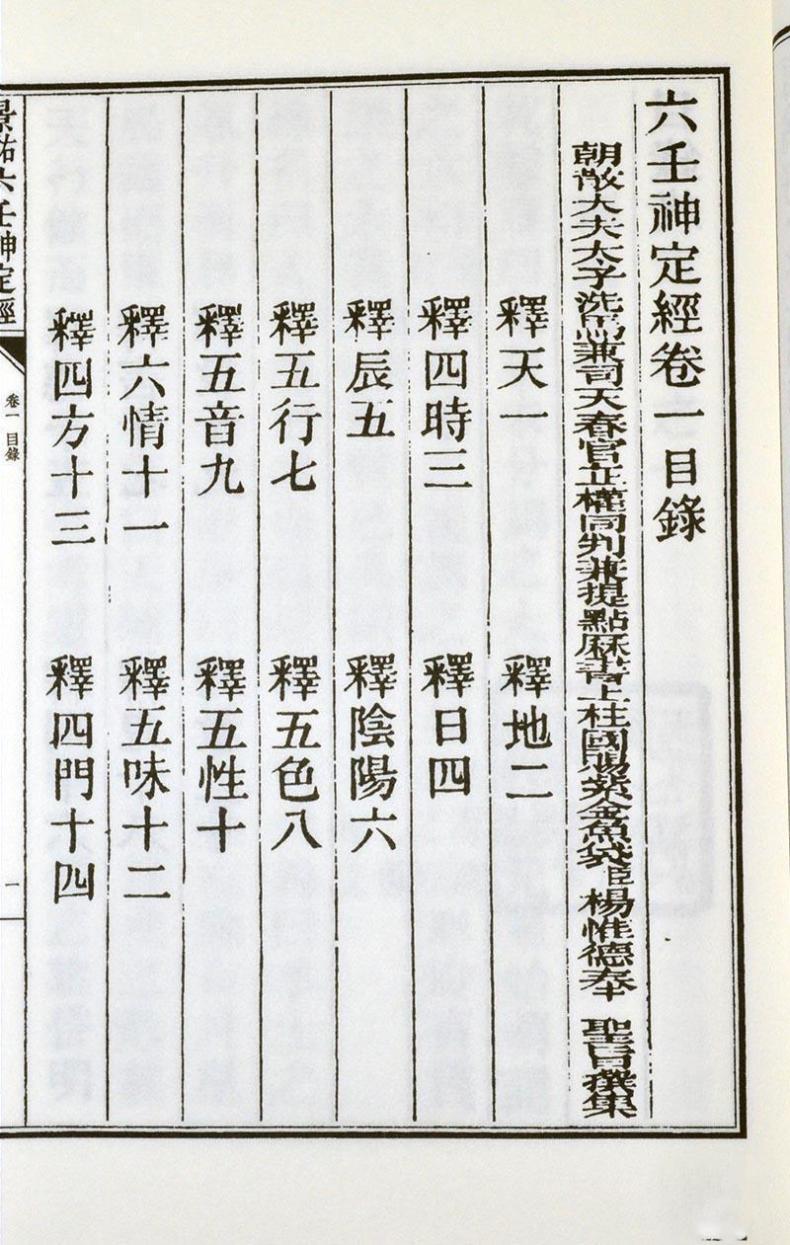 六壬神定經卷一目錄
朝散大夫太子洗馬兼司天春官正權同判兼提點厤書上柱國賜紫金魚袋臣楊惟德奉 聖旨撰集
釋天一 釋地二
釋四時三 釋日四
釋辰五 釋陰陽六
釋五行七 釋五色八
釋五音九 釋五性十
釋六情十一 釋五味十二
釋四方十三 釋四門十四
景祐六壬神定經
卷一目錄
一